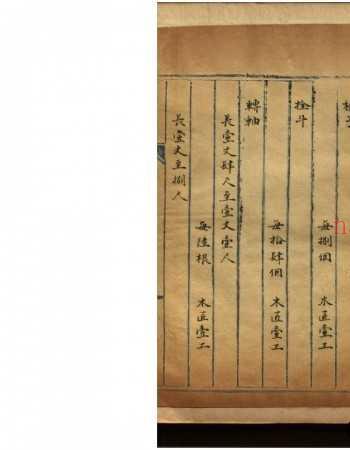 每捌個　木匠壹工
栓斗
每拾肆個　木匠壹工
轉軸
長壹丈肆尺至壹丈壹尺
每陸根　木匠壹工
長壹丈至捌尺